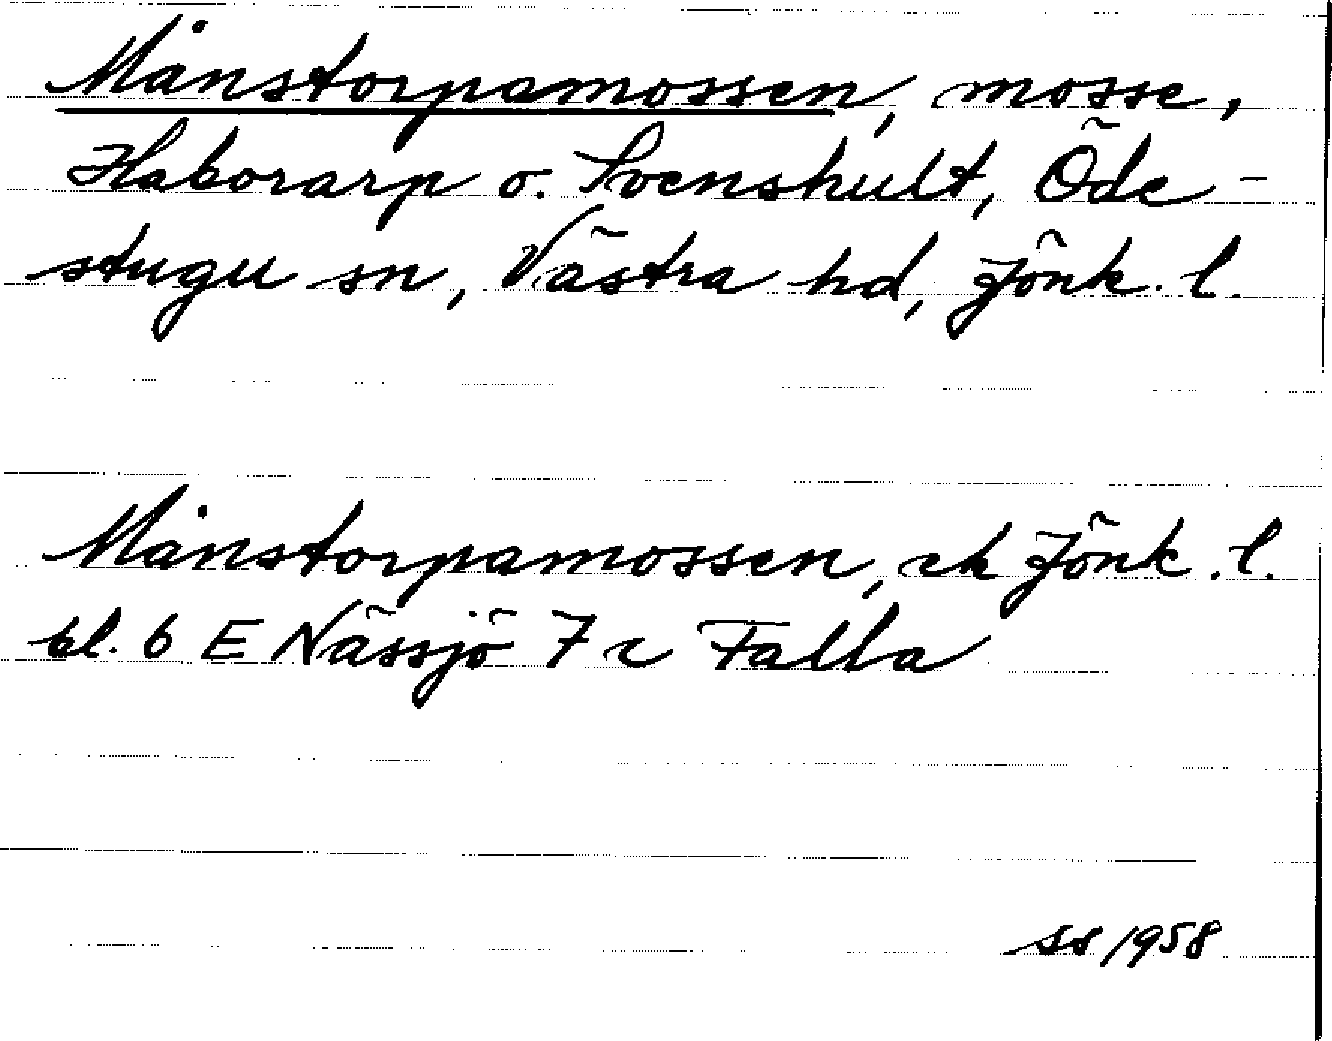 Månstorpamossen, mosse,
Haborarp o. Svenshult, Öde-
stugu sn, Västra hd, Jönk. l.
Månstorpamossen, ek Jönk. l.
bl. 6 E Nässjö 7 c Falla
SS 1958